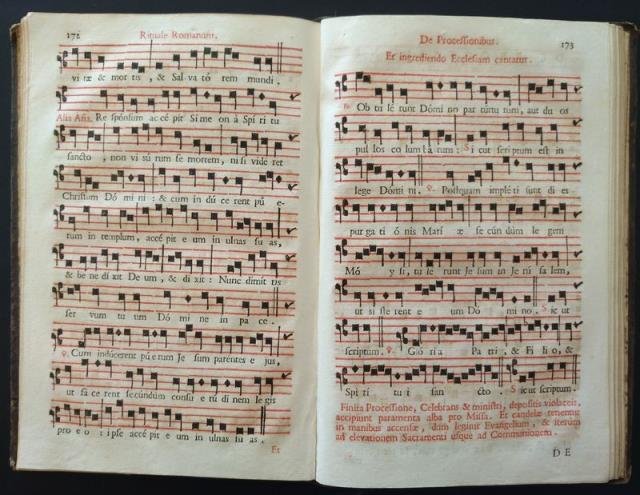 172
Rituale Romanum.
vi tæ & mor tis, & Sal va tó rem mundi.
Alia Aña. Re spónsum ac cé pit Si me on à Spí ri tu
sancto, non vi sú rum se mortem, ni si vidé ret
Christum Dó mi ni: & cum in dú ce rent pú e-
rum in templum, accé pit e um in ulnas su as,
& be ne dí xit De um, & di xit: Nunc dimít tis
ser vum tu um Dó mi ne in pa ce.
℣. Cum indúcerent pú e rum Je sum paréntes e jus,
ut fá ce rent secúndùm consu e tú di nem le gis
pro e o: ipse accé pit e um in ulnas su as.
Et
De Processionibus.
173
Et ingrediendo Ecclesiam cantatur.
Ob tu lé runt Dómi no par túrtu rum, aut du os
pul los co lumbá rum: Si cut scriptum est in
lege Dómi ni. ℣. Postquam impléti sunt di es
purga ti ó nis Marí æ se cún dùm le gem
Mó y si, tu lé runt Je sum in Je rú sa lem,
ut si ste rent e um Dó mi no. Si cut
scriptum. ℣. Gló ri a Pa tri, & Fí li o, &
Spi rí tu i san cto. Si cut scriptum.
Finita Processione, Celebrans & ministri, depositis violaceis,
accipiunt paramenta alba pro Missa. Et candelæ tenentur
in manibus accensæ, dum legitur Evangelium, & iterum
ad elevationem Sacramenti usque ad Communionem.
DE